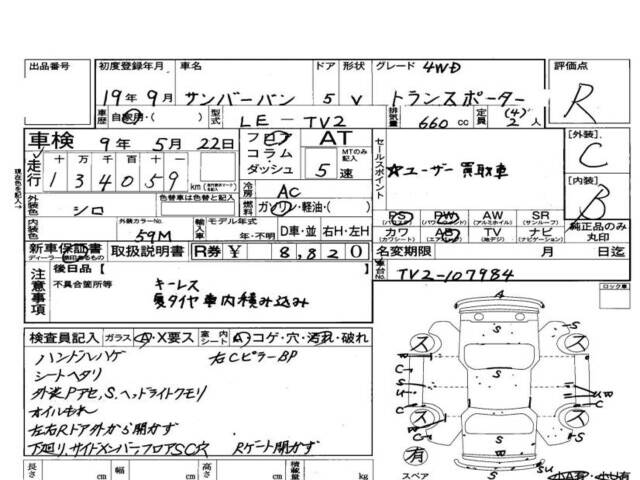 出品番号 初度登録年月 車名 ドア 形状 グレード 4WD 評価点
19年9月 サンバーバン 5 V トランスポーター R
車歴 自家用・( ) 型式 LE-TV2 排気量 660 cc 定員 (4) 2人
車検 9年 5月 22日 フロア AT [外装] C
走行 十 万 千 百 十 一 コラム MTのみ記入 セールスポイント
134059 km ダッシュ 5速 ☆ユーザー買取車
現在色を記入→ 色替車は色替と記入 冷房 AC [内装] B
外装色 シロ 燃料 ガソリン・軽油・( ) PS PW AW SR
(パワステ) (パワーウィンド) (アルミホイル) (サンルーフ)
内装色 外装カラーNo. 59M 輸入車 モデル年式 年・不明 D車・並 右H・左H カワ AB TV ナビ 純正品のみ丸印
(カワシート) (エアバッグ) (地デジ) (ナビゲーション)
新車保証書 取扱説明書 R券 ¥ 8,820 名変期限 月 日迄
車台No. TV2-107984
注意事項 後日品【 】
不具合箇所等 キーレス ロック車
夏タイヤ車内積み込み
検査員記入 ガラス A・X要ス 室内 シート A・コゲ・穴・汚れ・破れ
ハンドルハゲ 右CピラーBP
シートヘタり
外装Pアセ、S、ヘッドライトクモリ
オイルもれ
左右Rドア外から開かず
下廻り、サイドメンバーフロアSC穴 Rゲート開かず
長さ cm 幅 cm 高さ cm 積載量 kg
A S ス ス W C S U C S S S S UW C ス ス W S 有 SU
スペア 小A有 小U有